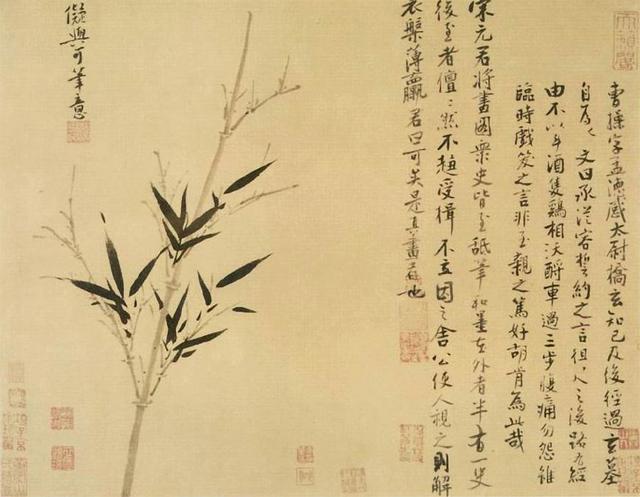 曹操字孟德感太尉橋玄知己及後經過玄墓
自爲文曰承從容誓約之言徂之後路有經
由不以斗酒隻鷄相沃酹車過三步腹痛勿怨雖
臨時戲笑之言非至親之篤好胡肯為此哉
宋元君將畫圖衆史皆至舐筆和墨在外者半有一史
後至者儃〻然不趨受揖不立因之舍公使人視之則解
衣槃薄臝君曰可矣是真畫者也
儗與可筆意